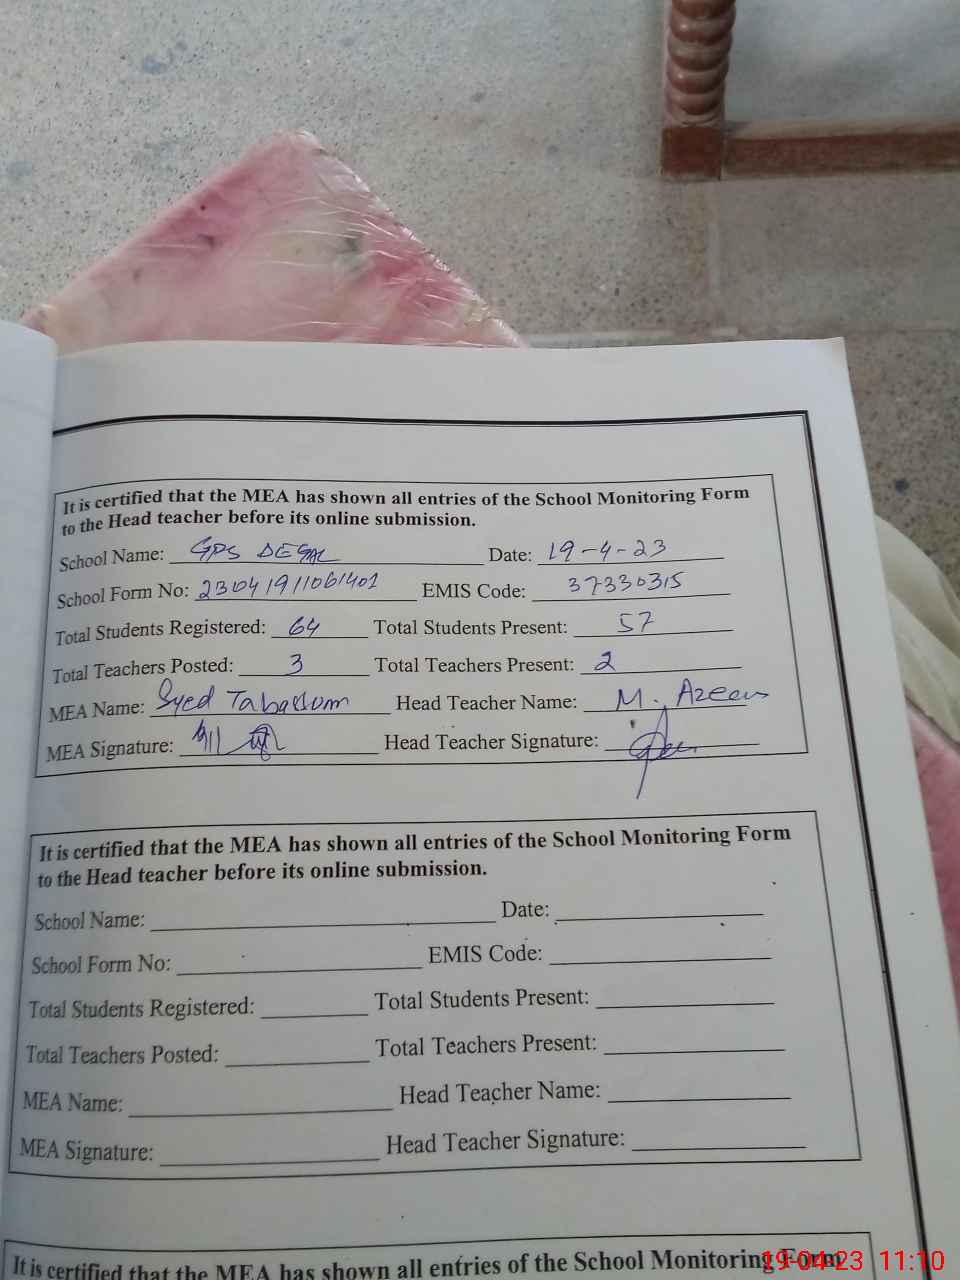 It is certified that the MEA has shown all entries of the School Monitoring Form
to the Head teacher before its online submission.
School Name: GPS Date: 19-4-23
School Form No: 23041911061401 EMIS Code: 37330315
Total Students Registered: 64 Total Students Present: 57
Total Teachers Posted: 3 Total Teachers Present: 2
MEA Name: Syed Tabassom Head Teacher Name: M. Azeem
MEA Signature: Head Teacher Signature:
It is certified that the MEA has shown all entries of the School Monitoring Form
to the Head teacher before its online submission.
School Name: Date:
School Form No: EMIS Code:
Total Students Registered: Total Students Present:
Total Teachers Posted: Total Teachers Present:
MEA Name: Head Teacher Name:
MEA Signature: Head Teacher Signature:
It is certified that the MEA has shown all entries of the School Monitoring Form
19-04-23 11:10